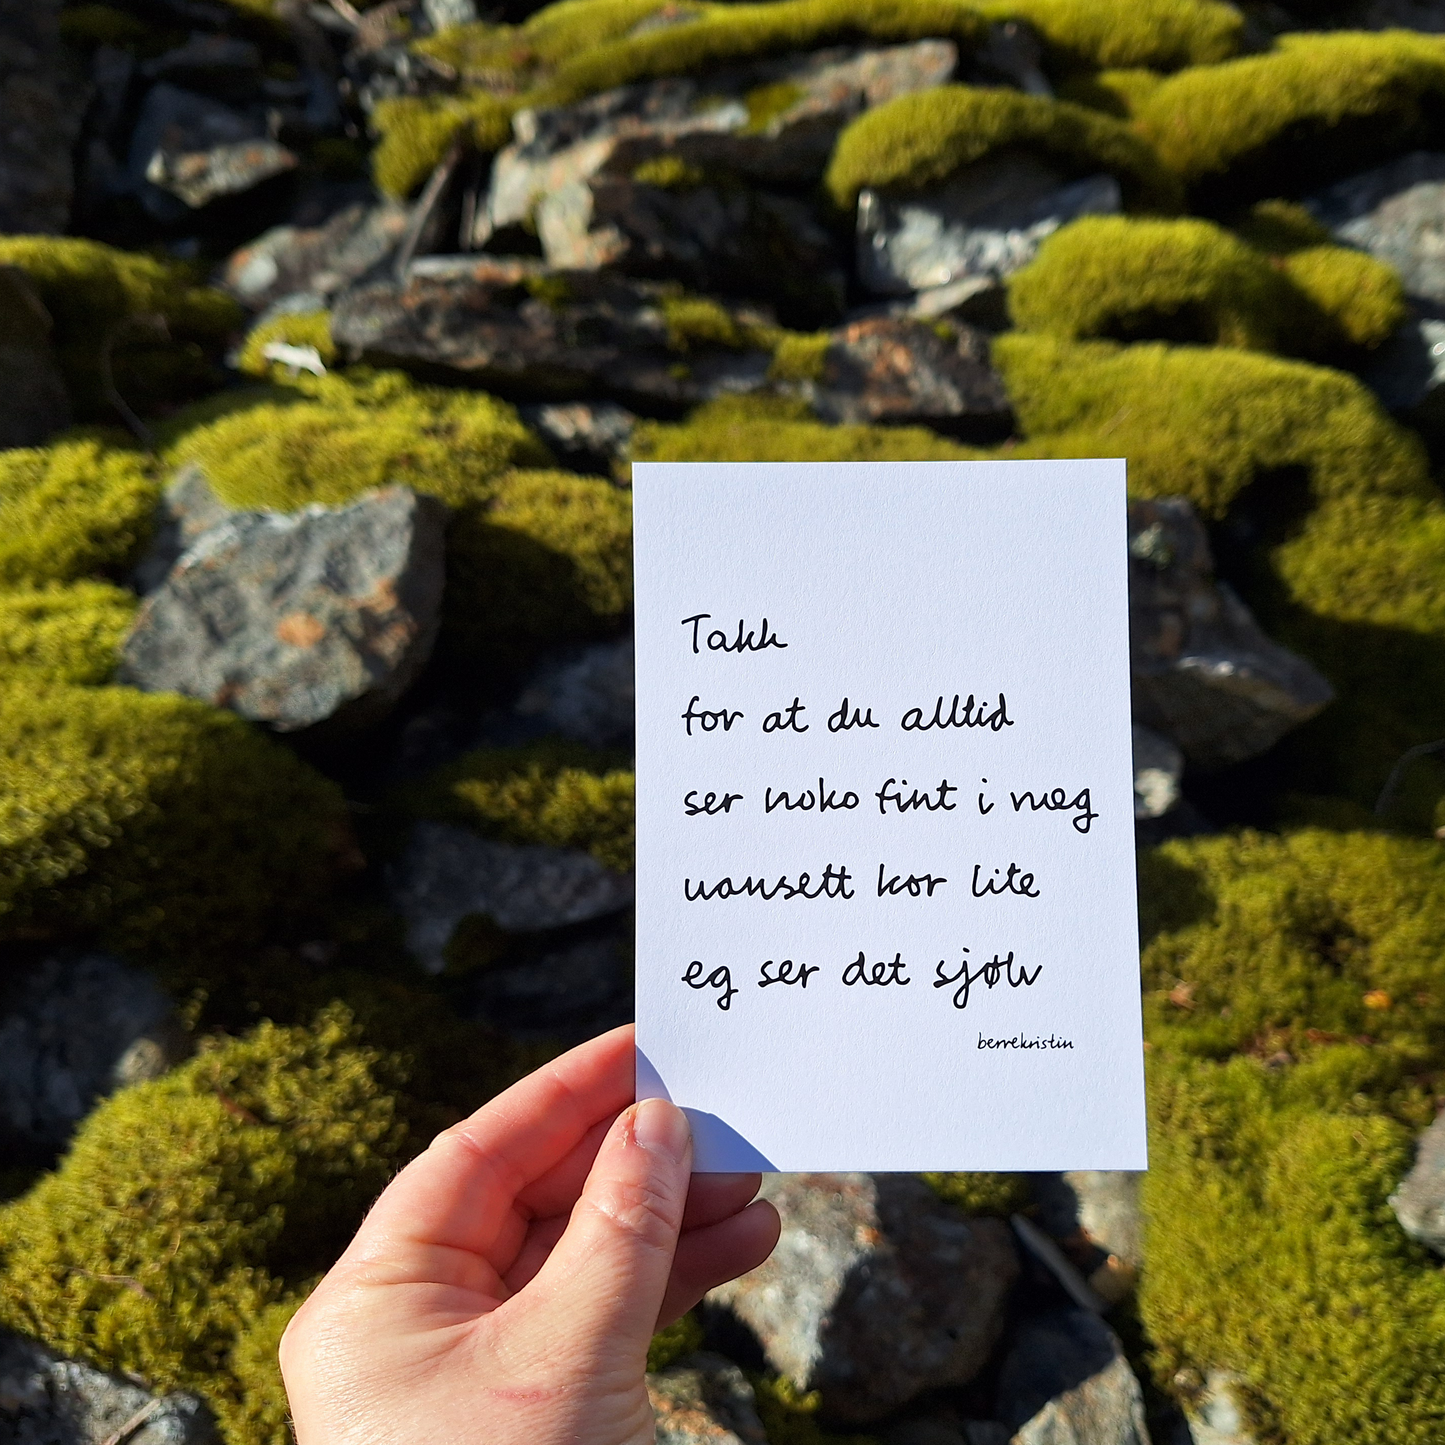 Takk
for at du alltid
ser noko fint i meg
uansett kor lite
eg ser det sjølv
berrekristin